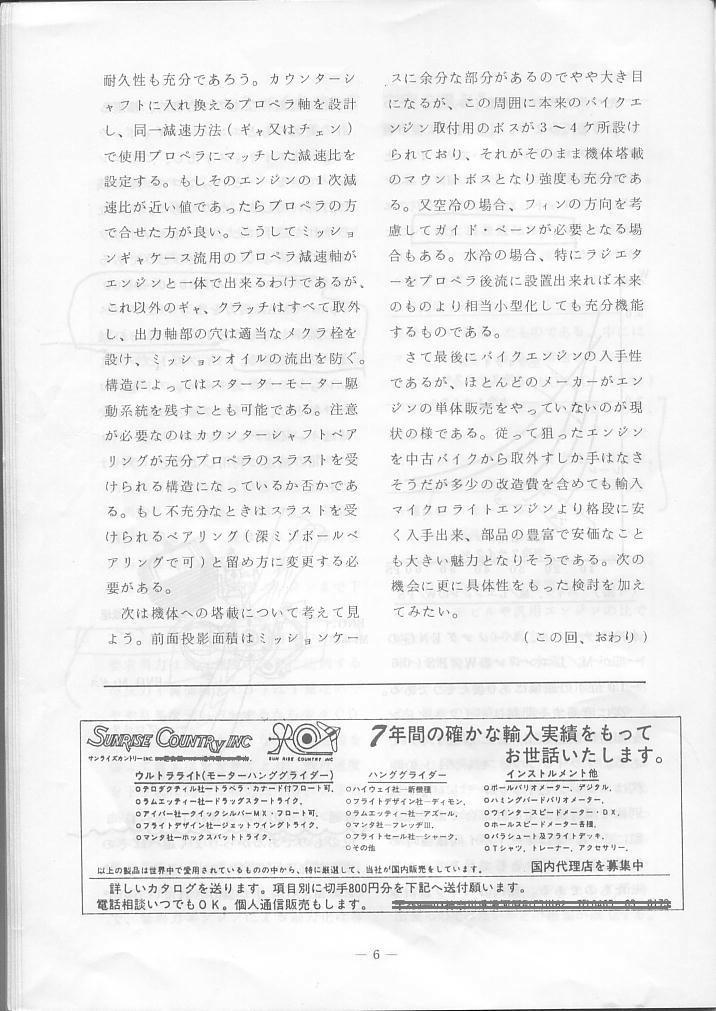 耐久性も充分であろう。カウンターシ
ャフトに入れ換えるプロペラ軸を設計
し、同一減速方法(ギャ又はチェン)
で使用プロペラにマッチした減速比を
設定する。もしそのエンジンの1次減
速比が近い値であったらプロペラの方
で合せた方が良い。こうしてミッショ
ンギャケース流用のプロペラ減速軸が
エンジンと一体で出来るわけであるが、
これ以外のギャ、クラッチはすべて取外
し、出力軸部の穴は適当なメクラ栓を
設け、ミッションオイルの流出を防ぐ。
構造によってはスターターモーター駆
動系統を残すことも可能である。注意
が必要なのはカウンターシャフトベア
リングが充分プロペラのスラストを受
けられる構造になっているか否かであ
る。もし不充分なときはスラストを受
けられるベアリング(深ミゾボールベ
アリングで可)と留め方に変更する必
要がある。
次は機体への塔載について考えて見
よう。前面投影面積はミッションケー
スに余分な部分があるのでやや大き目
になるが、この周囲に本来のバイクエ
ンジン取付用のボスが3〜4ケ所設け
られており、それがそのまま機体塔載
のマウントボスとなり強度も充分であ
る。又空冷の場合、フィンの方向を考
慮してガイド・ベーンが必要となる場
合もある。水冷の場合、特にラジエタ
ーをプロペラ後流に設置出来れば本来
のものより相当小型化しても充分機能
するものである。
さて最後にバイクエンジンの入手性
であるが、ほとんどのメーカーがエン
ジンの単体販売をやっていないのが現
状の様である。従って狙ったエンジン
を中古バイクから取外すしか手はなさ
そうだが多少の改造費を含めても輸入
マイクロライトエンジンより格段に安
く入手出来、部品の豊富で安価なこと
も大きい魅力となりそうである。次の
機会に更に具体性をもった検討を加え
てみたい。
(この回、おわり)
SUNRISE COUNTRY INC
サンライズカントリーINC
SUN RISE COUNTRY INC
7年間の確かな輸入実績をもって
お世話いたします。
ウルトラライト(モーターハンググライダー)
○テロダクティル社ートラベラ・カナード付フロート可、
○ラムエッティー社ードラッグスタートライク、
○アイバー社ークイックシルバーMX・フロート可、
○フライトデザイン社ージェットウイングトライク、
○マンタ社ーホックスバットトライク、
ハンググライダー
○ハイウェイ社ー新機種
○フライトデザイン社ーディモン、
○ラムエッティー社ーアズール、
○マンタ社ーフレッヂIII、
○フライトセール社ーシャーク、
○その他
インストルメント他
○ボールバリオメーター、デジタル、
○ハミングバードバリオメーター、
○ウインタースピードメーター・DX、
○ホールスピードメーター各種、
○パラシュート及フライトデッキ、
○Tシャツ、トレーナー、アクセサリー、
以上の製品は世界中で愛用されているものの中から、特に厳選して、当社が国内販売をしています。
国内代理店を募集中
詳しいカタログを送ります。項目別に切手800円分を下記へ送付願います。
電話相談いつでもOK。個人通信販売もします。
— 6 —